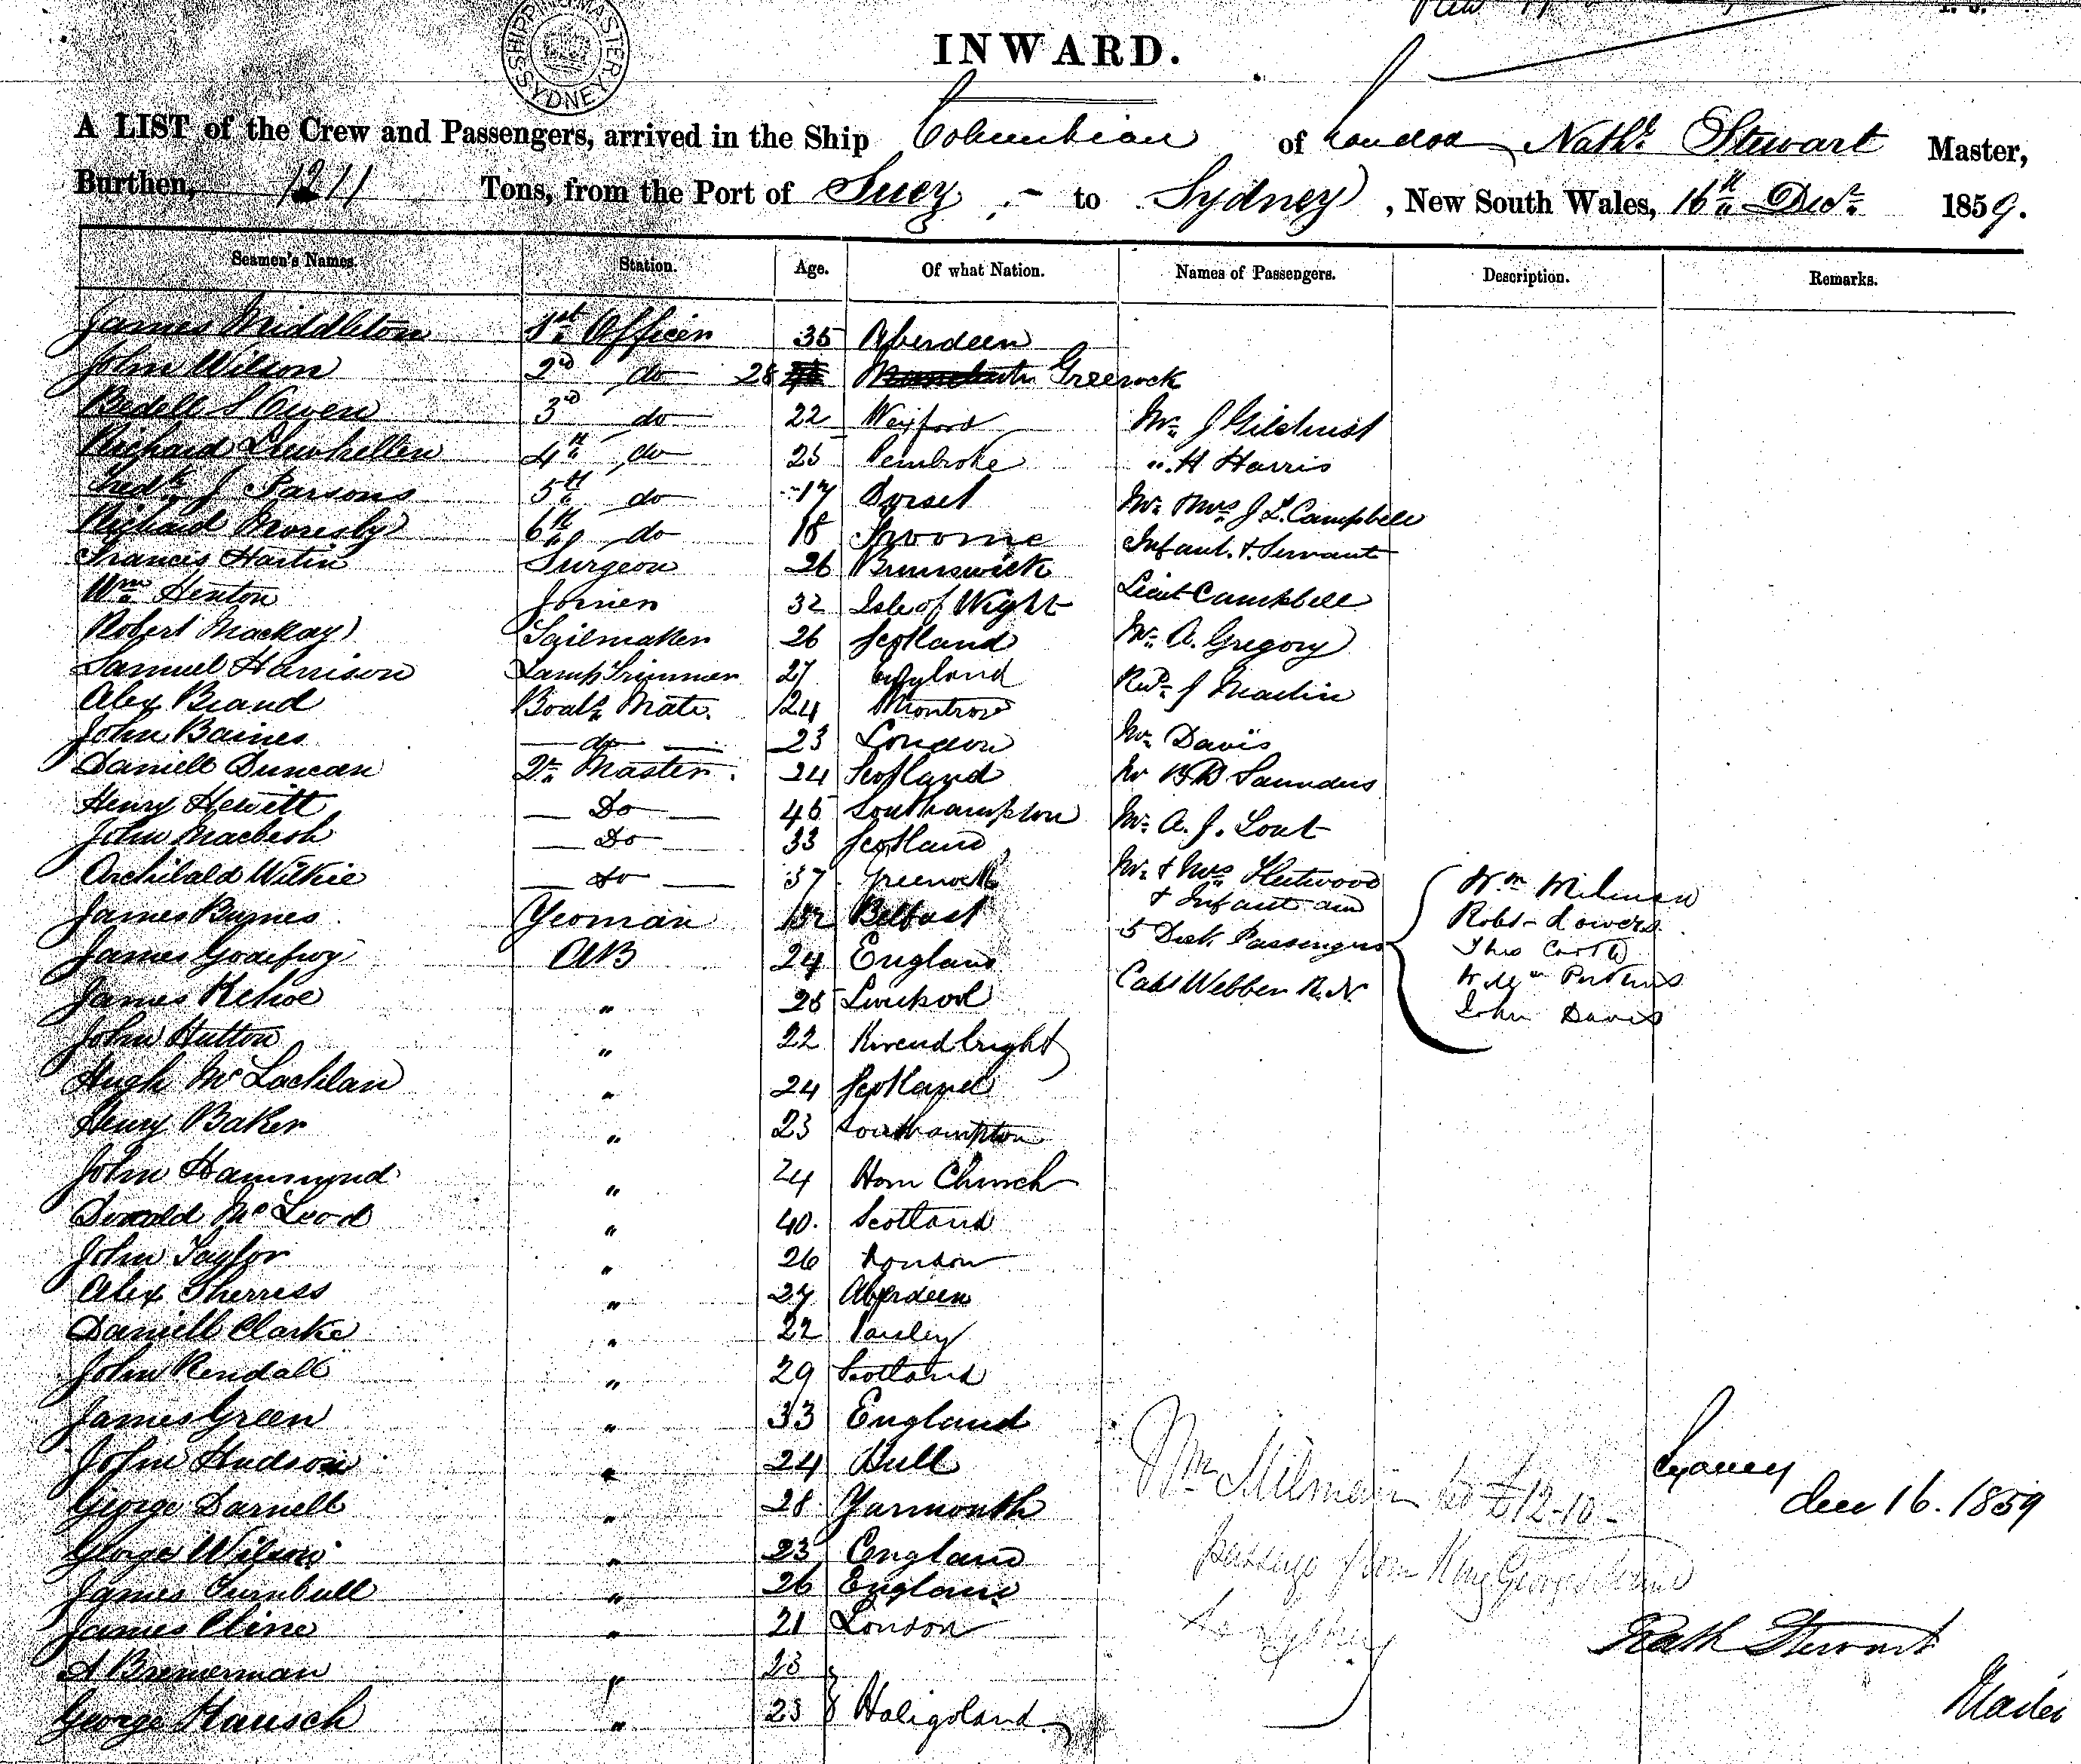 SHIPPING MASTER SYDNEY
INWARD.
A LIST of the Crew and Passengers, arrived in the Ship Columbian of London, Nathl. Stewart Master,
Burthen, 1211 Tons, from the Port of Suez to Sydney, New South Wales, 16th Decr. 1859.
Seamen's Names. Station. Age. Of what Nation. Names of Passengers. Description. Remarks.
James Middleton 1st Officer 35 Aberdeen
John Wilson 2nd do 28 Greenock
Bedell S Owen 3rd do 22 Wexford Mr. J Gilchrist
Richard 4th do 25 Pembroke " H Harris
Fredk. J Parsons 5th do 17 Dorset Mr. & Mrs J. L. Campbell
Richard Moresby 6th do 18 Froome Infant & Servant
Francis Hartin Surgeon 26 Brunswick
Wm Henton Joiner 32 Isle of Wight Lieut Campbell
Robert Mackay Sailmaker 26 Scotland Mr. A. Gregory
Samuel Harrison Lamp Trimmer 27 England Revd. J Martin
Alex Brand Boats. Mate. 24 Montrose
John Baines do 23 London Mr. Davis
Daniell Duncan Qr. Master. 24 Scotland Mr Saunders
Henry Hewitt Do 45 Southampton Mr. A. J.
John Macbeth Do 33 Scotland
Archibald Wilkie do 37 Greenock Mr. & Mrs Fleetwood Wm Milman
James Burnes Yeoman 32 Belfast & Infant and Robt
James Godefroy AB 24 England 5 Deck Passengers Thos
James Kehoe " 25 Liverpool Capt Webber R.N. John Davis
John Hutton " 22
Hugh McLachlan " 24 Scotland
Henry Baker " 23 Southampton
John Hammond " 24 Horn Church
Donald McLeod " 40. Scotland
John Taylor " 26 London
Alex Sherriss " 27 Aberdeen
Daniell Clarke " 22 Paisley
John Kendall " 29 Scotland
James Green " 33 England
John Hudson " 24 Hull Sydney
George Darnell " 28 Yarmouth Wm Milman £12-10- dec 16. 1859
George Wilson " 23 England passage from King Georges Sound
James Turnbull " 26 England
James Cline " 21 London to Sydney Nath Stewart
A Bremerman " 23
George Hausch " 23 Haligoland Master